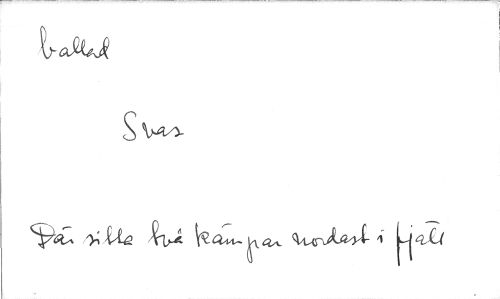 ballad
Svar
Där sitta två kämpar nordast i fjäll